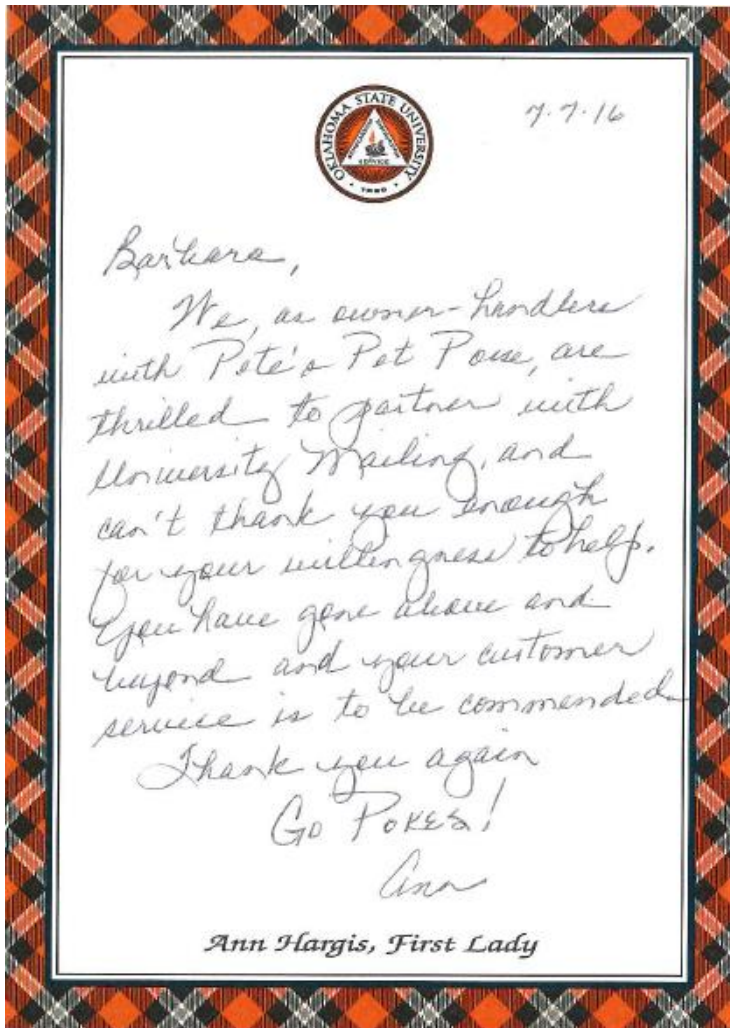 OKLAHOMA STATE UNIVERSITY
SERVICE
• 1890 •
7.7.16
Barbara,
We, as owner-handlers
with Pete's Pet Posse, are
thrilled to partner with
University Mailing, and
can't thank you enough
for your willingness to help.
You have gone above and
beyond and your customer
service is to be commended.
Thank you again
Go Pokes!
Ann
Ann Hargis, First Lady